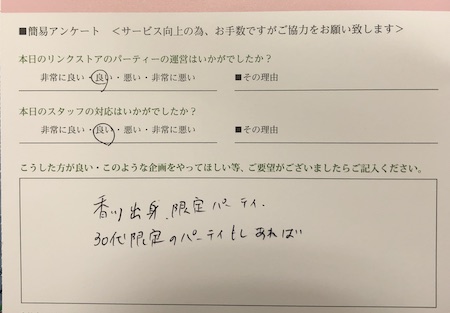 ■簡易アンケート ＜サービス向上の為、お手数ですがご協力をお願い致します＞
本日のリンクストアのパーティーの運営はいかがでしたか？
非常に良い・良い・悪い・非常に悪い ■その理由
本日のスタッフの対応はいかがでしたか？
非常に良い・良い・悪い・非常に悪い ■その理由
こうした方が良い・このような企画をやってほしい等、ご要望がございましたらご記入ください。
香川出身限定パーティ.
30代限定のパーティもしあれば